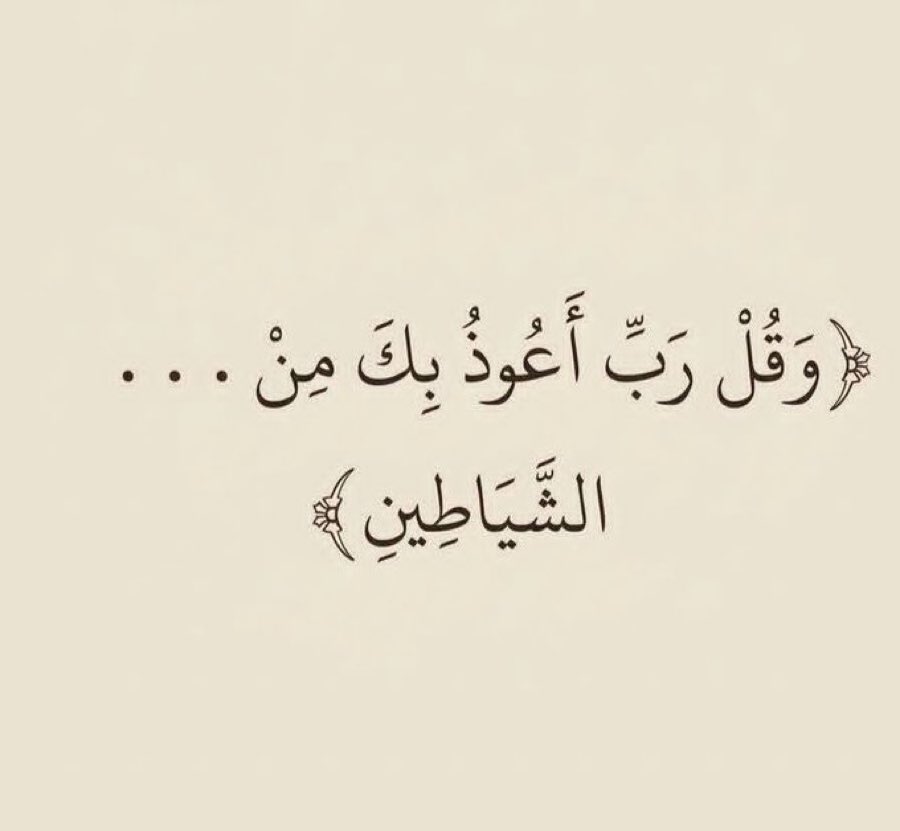 ﴿وَقُلْ رَبِّ أَعُوذُ بِكَ مِنْ . . .
الشَّيَاطِينِ﴾